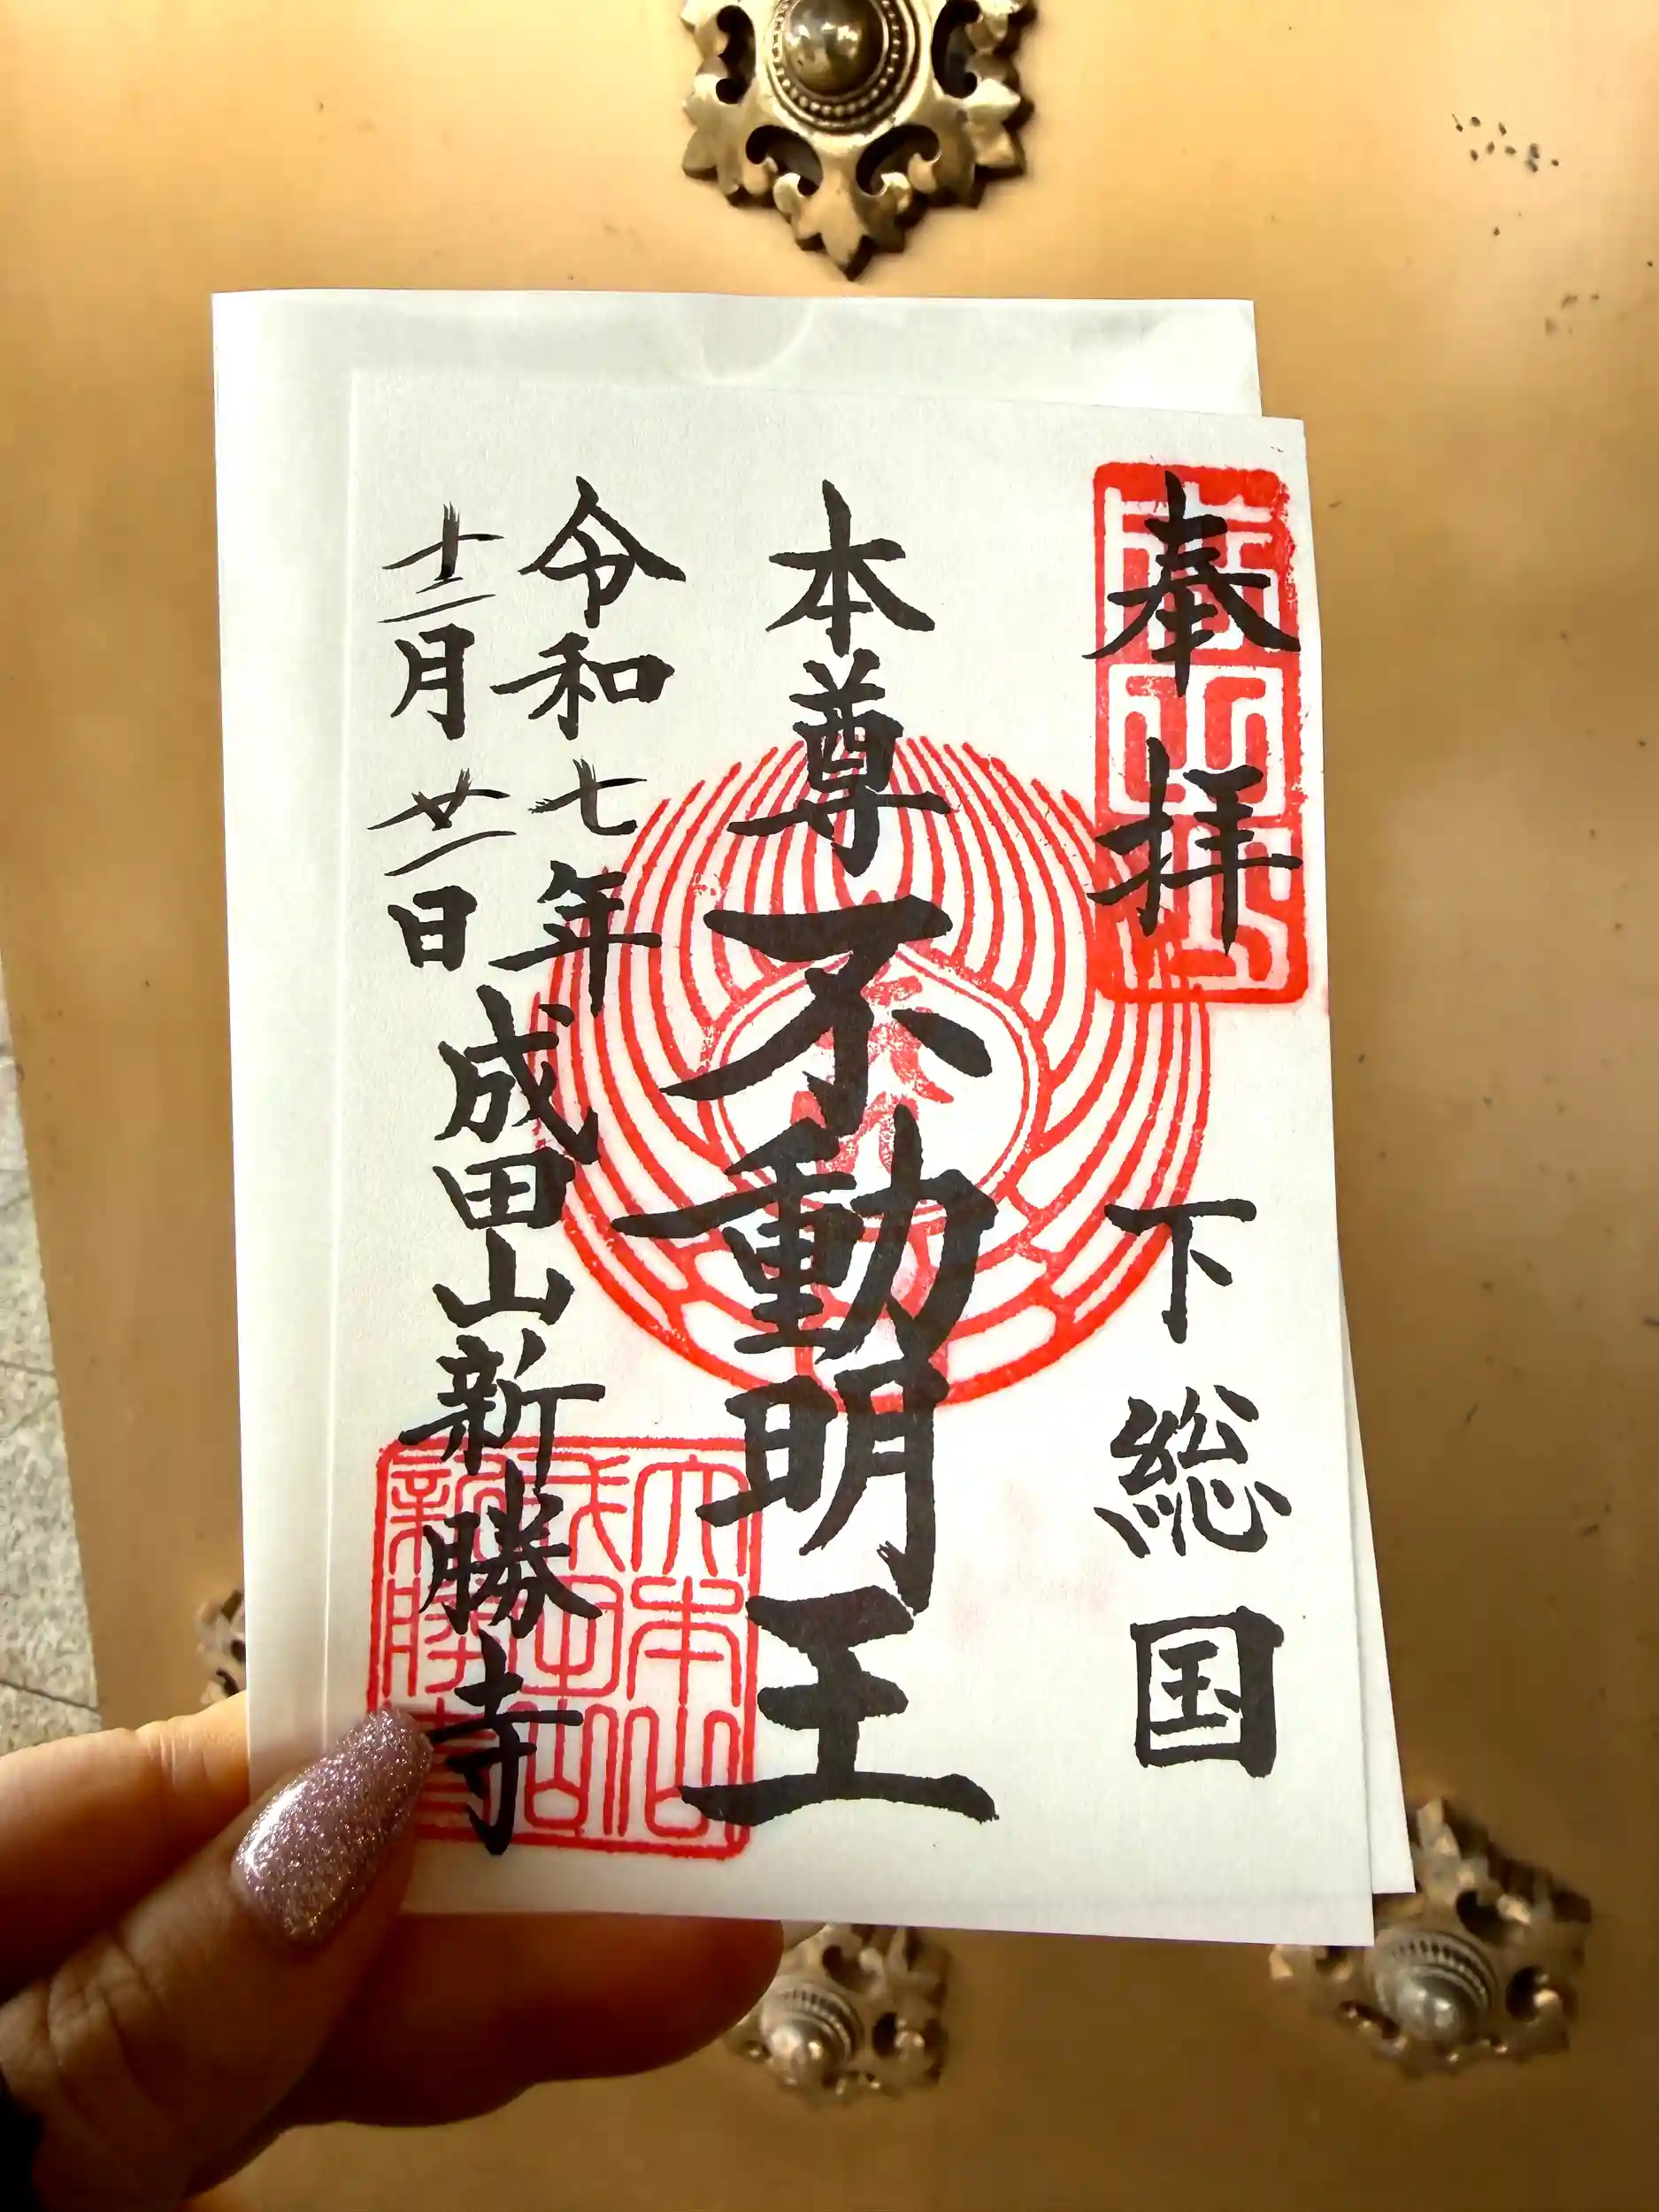 奉拝
下総国
本尊不動明王
令和七年
十二月廿一日
成田山新勝寺
大本山
成田山
新勝寺